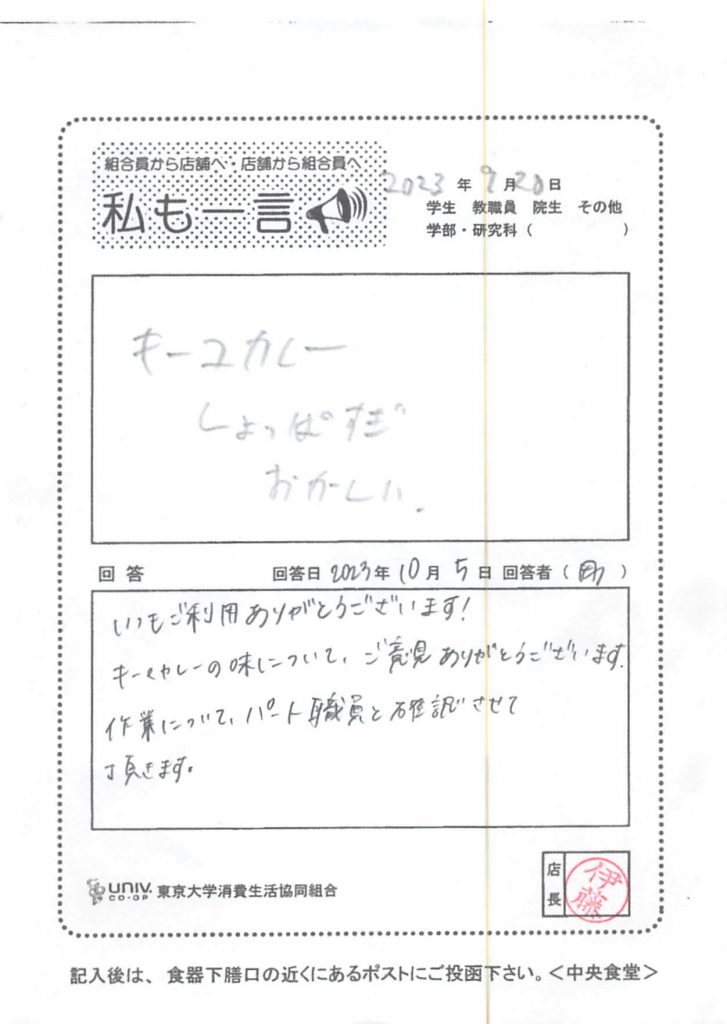 組合員から店舗へ・店舗から組合員へ
私も一言
2023 年 9 月 20 日
学生 教職員 院生 その他
学部・研究科 ( )
キーマカレー
しょっぱすぎ
おかしい.
回答 回答日 2023年 10月 5日 回答者 ( )
いつもご利用ありがとうございます!
キーマカレーの味について、ご意見ありがとうございます.
作業について、パート職員と確認させて
頂きます。
UNIV. CO-OP 東京大学消費生活協同組合
店長 伊藤
記入後は、食器下膳口の近くにあるポストにご投函下さい。<中央食堂>